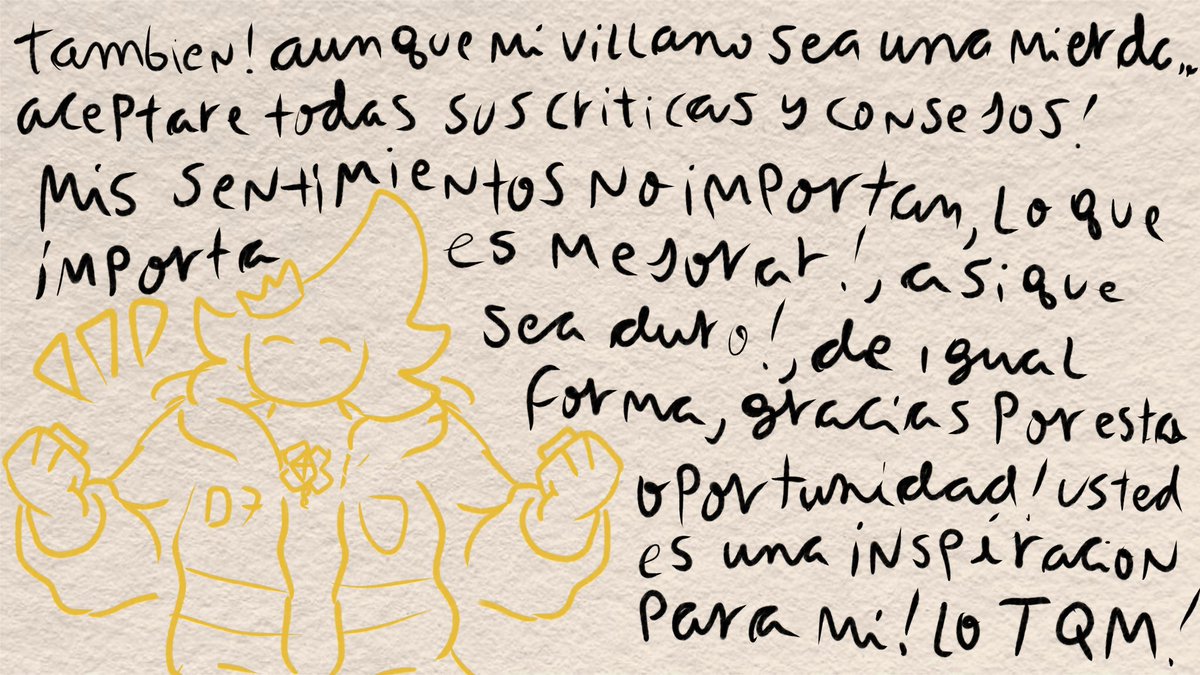 tambien! aunque mi villano sea una mierda...
aceptare todas sus criticas y consejos!
mis sentimientos no importan, lo que
importa es mejorar!, asi que
sea duro!, de igual
forma, gracias por esta
oportunidad! usted
es una inspiracion
para mi! lo TQM!
D7